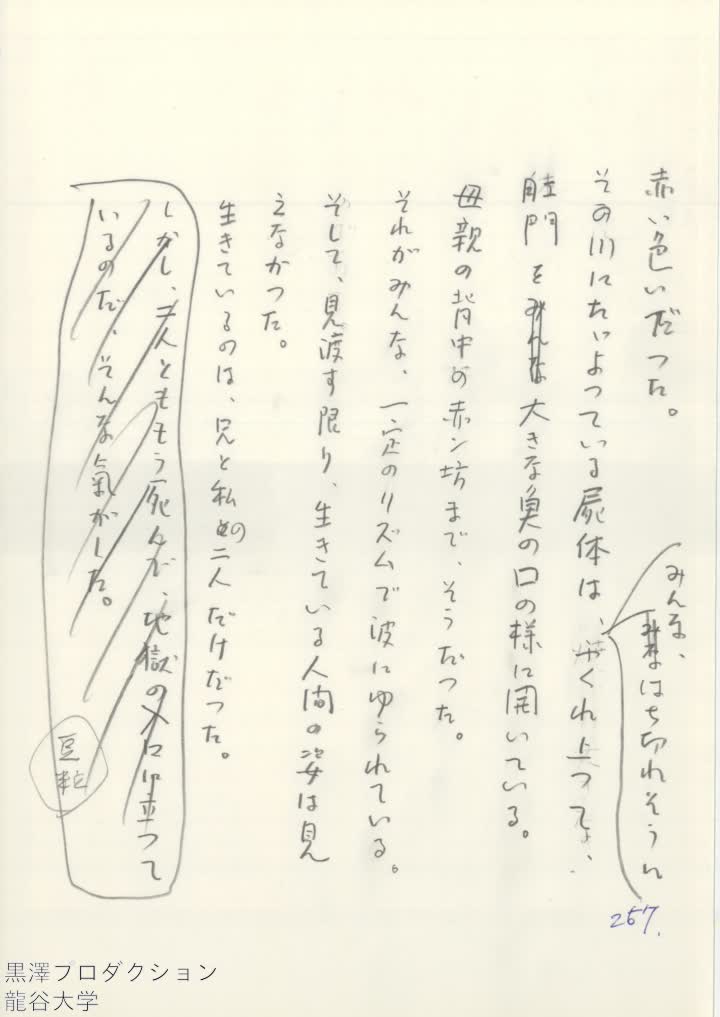 赤い色いだつた。
みんな、はち切れそうに
その川にたゞよつている屍体は、くれ上つて、
肛門を大きな魚の口の様に開いている。
母親の背中の赤ン坊まで、そうだつた。
それがみんな、一定のリズムで波にゆられている。
そして、見渡す限り、生きている人間の姿は見
えなかつた。
生きているのは、兄と私の二人だけだつた。
しかし、二人とももう死んで、地獄の入口に立つて
いるのだ、そんな氣がした。
豆粒
257.
黒澤プロダクション
龍谷大学